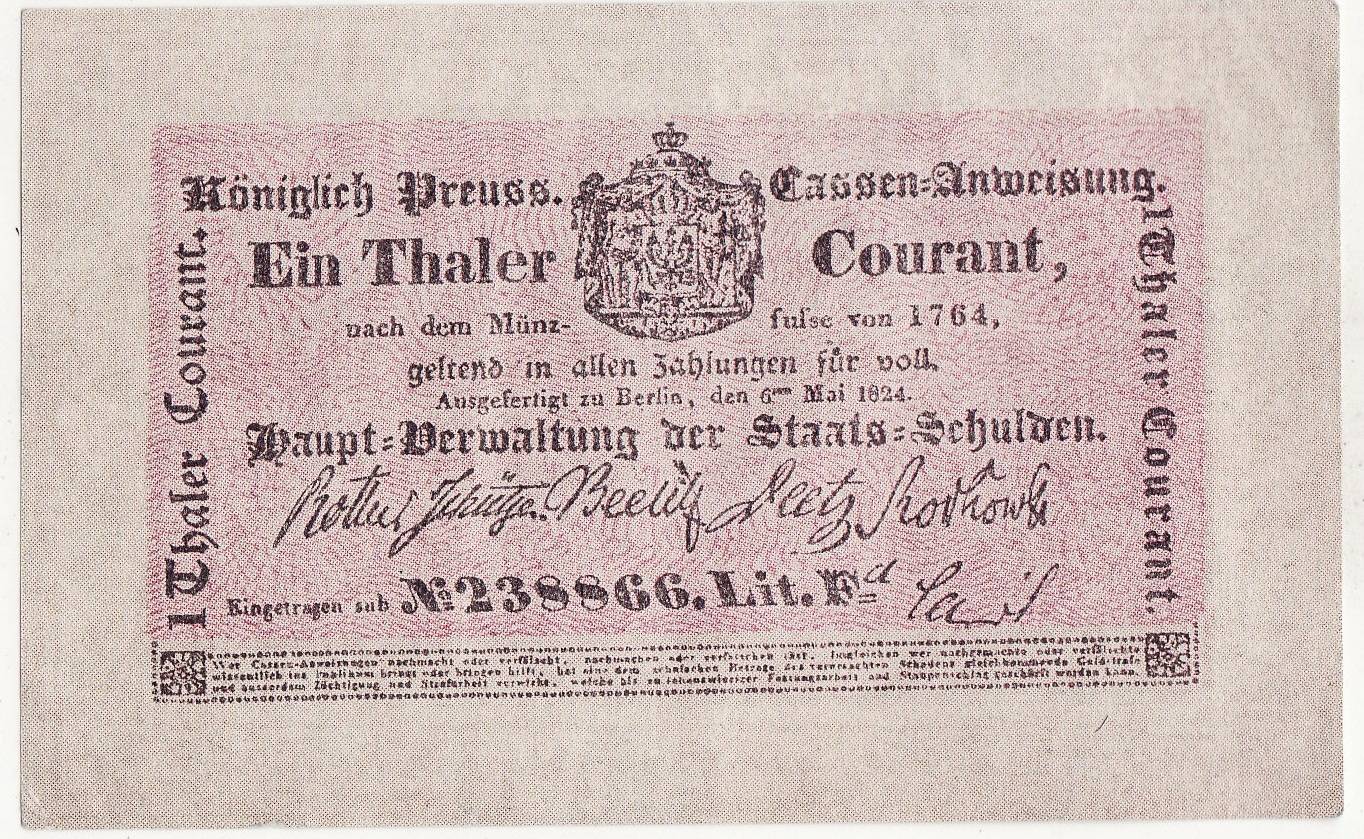 Königlich Preuss. Cassen=Anweisung.
Ein Thaler Courant,
nach dem Münz- fuſse von 1764,
geltend in allen Zahlungen für voll.
Ausgefertigt zu Berlin, den 6ten Mai 1824.
Haupt=Verwaltung der Staats=Schulden.
Rother Schütze. Beelitz Deetz Rochow
Eingetragen sub No 238866. Lit. F d
1 Thaler Courant.
1 Thaler Courant.
Wer Cassen-Anweisungen nachmacht oder verfälscht, nachmachen oder verfälschen läst, imgleichen wer nachgemachte oder verfälschte
wissentlich ins Publikum bringt oder bringen hilft, hat eine dem zehnfachen Betrage des verursachten Schadens gleichkommende Geld-trafe
und ausserdem Züchtigung und Strafarbeit verwirkt, welche bis zu lebenswieriger Festungsarbeit und Staupenschlag geschärft werden kann.